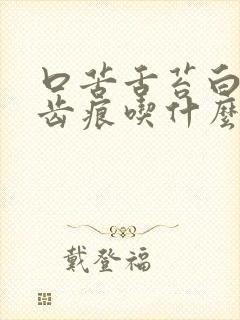 口苦舌苔白
齿痕喫什麼
戴登福